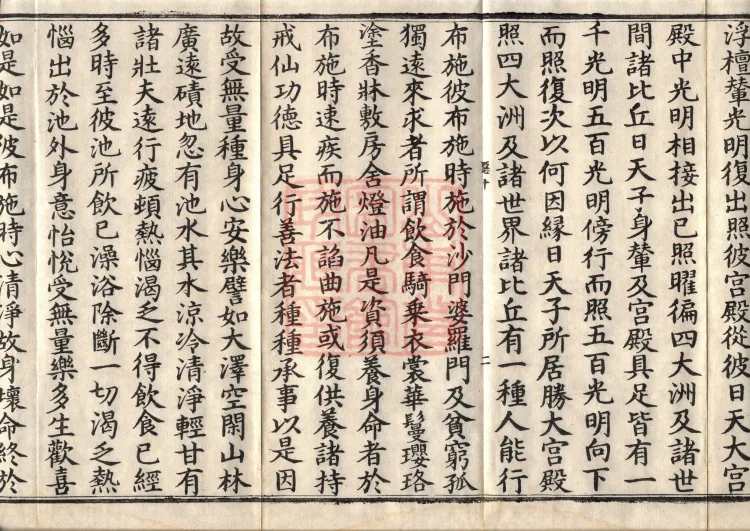 浮檀輦光明復出照彼宮殿從彼日天大宮
殿中光明相接出已照曜徧四大洲及諸世
間諸比丘日天子身輦及宮殿具足皆有一
千光明五百光明傍行而照五百光明向下
而照復次以何因緣日天子所居勝大宮殿
照四大洲及諸世界諸比丘有一種人能行
二
布施彼布施時施於沙門婆羅門及貧窮孤
獨遠來求者所謂飲食騎乘衣裳華鬘瓔珞
塗香牀敷房舍燈油凡是資須養身命者於
布施時速疾而施不諂曲施或復供養諸持
戒仙功德具足行善法者種種承事以是因
故受無量種身心安樂譬如大澤空閑山林
廣遠磧地忽有池水其水涼冷清淨輕甘有
諸壯夫遠行疲頓熱惱渴乏不得飲食已經
多時至彼池所飲已澡浴除斷一切渴乏熱
惱出於池外身意怡悅受無量樂多生歡喜
如是如是彼布施時心清淨故身壞命終於